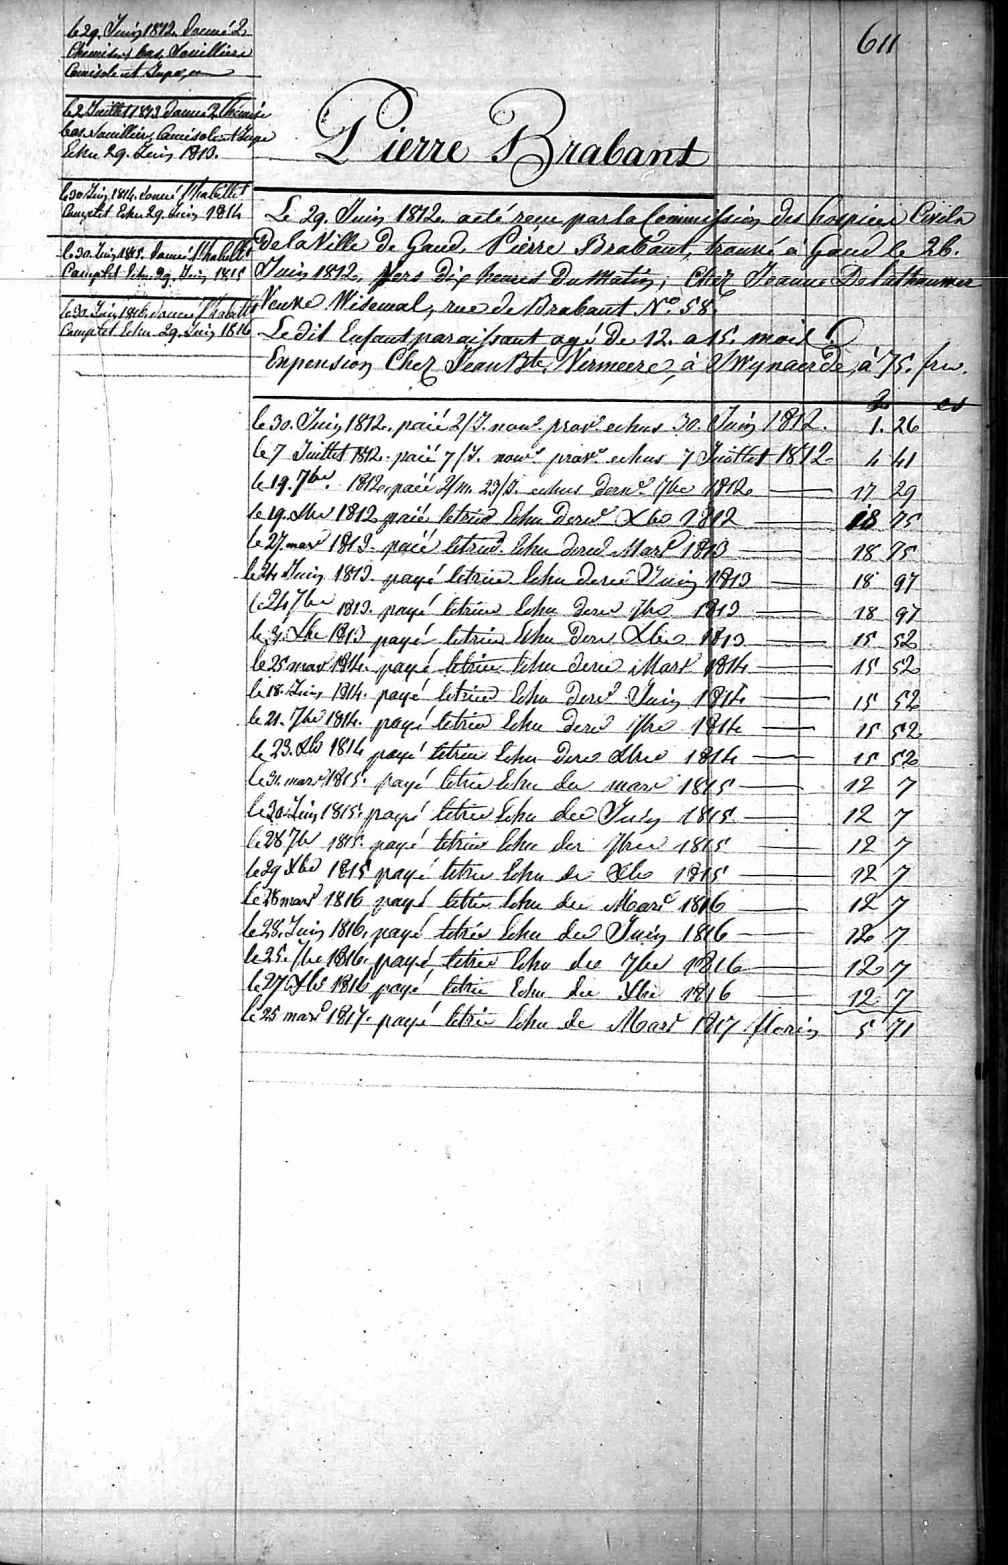 611
le 29. Juin 1812. donné 2
Chemises, bas, Souilliers
Camisole et Jupe,
le 2 Juillet 1813 donné 2 Chemise
bas Souilliers, Camisole et Jupe
Echu 29. Juin 1813.
le 30 Juin 1814. donné l'habillt
Complet Echu 29. Juin 1814
le 30 Juin 1815. donné l'habillt
Complet Echu 29. Juin 1815
le 30 Juin 1816. donné l'habillt
Complet Echu 29. Juin 1816
Pierre Brabant
Le 29. Juin 1812. acte reçu par la Commission des hospices Civils
De la Ville de Gand, Pierre Brabant, trouvé à Gand le 26.
Juin 1812, vers Dix heures Du Matin, Chez Jeanne
Veuve Wisemal, rue de Brabant No. 58.
Le dit Enfant paraissant agé De 12. a 15. mois
Enpension Chez Jean Bte. Vermeere, à Swynaerde, à 75. frs.
le 30. Juin 1812. paié 2/J. nour. prov. echus 30. Juin 1812. 1. 26
le 7 Juillet 1812. paié 7/J. nour. prov. echus 7 Juillet 1812 4 41
le 19. 7bre. 1812. paié 2/m. 23/J. echus dern. 7bre 1812 17 29
le 19. Xbre 1812 paié letrim Echu dern Xbre 1812 18 75
le 27. mars 1813. paié letrim. Echu dern Mars 1813 18 75
le 24 Juin 1813. payé letrim Echu dern Juin 1813 18 97
le 24 7bre 1813. payé letrim Echu dern 7bre 1813 18 97
le 31. Xbre 1813 payé letrim Echu dern Xbre 1813 15 52
le 25 mars 1814. payé letrim Echu dern Mars 1814 15 52
le 18. Juin 1814. payé letrim Echu dern Juin 1814 15 52
le 21. 7bre 1814. payé letrim Echu dern 7bre 1814 15 52
le 23. Xbre 1814 payé letrim Echu dern Xbre 1814 15 52
le 31 mars 1815. payé letrim Echu der mars 1815 12 7
le 30 Juin 1815. payé letrim Echu der Juin 1815 12 7
le 28 7bre 1815. payé letrim Echu der 7bre 1815 12 7
le 29 Xbre 1815 payé letrim Echu der Xbre 1815 12 7
le 28 mars 1816 payé letrim Echu der Mars 1816 12 7
le 28. Juin 1816. payé letrim Echu der Juin 1816 12 7
le 25. 7bre 1816. payé letrim Echu der 7bre 1816 12 7
le 27 Xbre 1816 payé letrim Echu der Xbre 1816 12 7
le 25 mars 1817. payé letrim Echu de Mars 1817 florins 5 71